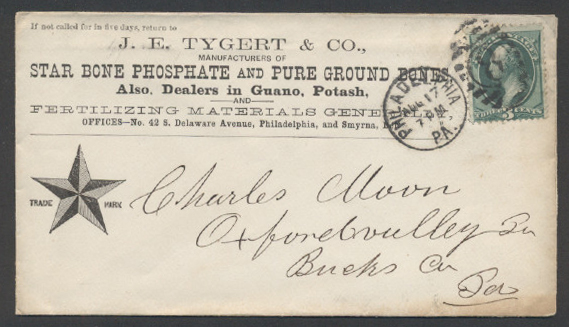 If not called for in five days, return to
J. E. TYGERT & CO.,
MANUFACTURERS OF
STAR BONE PHOSPHATE AND PURE GROUND BONES,
Also, Dealers in Guano, Potash,
AND
FERTILIZING MATERIALS GENERALLY
OFFICES—No. 42 S. Delaware Avenue, Philadelphia, and Smyrna,
PHILADELPHIA
17
7 PM
PA.
THREE CENTS
TRADE MARK
Charles Moon
Oxfordvulley
Bucks Co
Pa